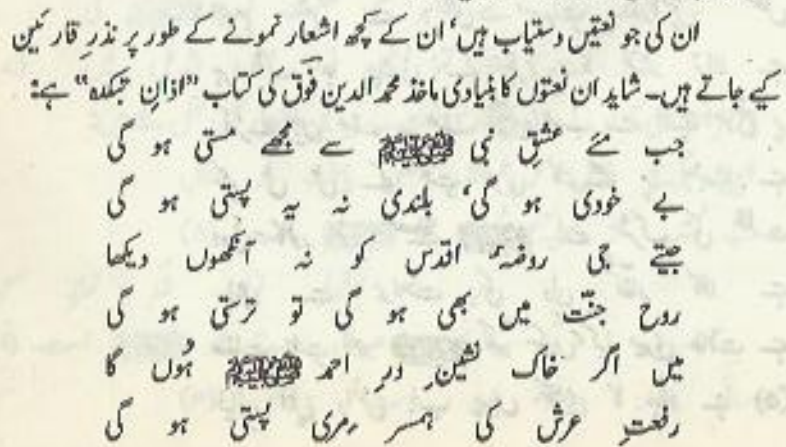 ان کی جو نعتیں دستیاب ہیں‘ ان کے کچھ اشعار نمونے کے طور پر نذرِ قارئین
کیے جاتے ہیں۔ شاید ان نعتوں کا بنیادی ماخذ محمد الدین فوقؔ کی کتاب "اذانِ بتکدہ" ہے:
جب مئے عشقِ نبی ﷺ سے مجھے مستی ہو گی
بے خودی ہو گی‘ بلندی نہ یہ پستی ہو گی
جیتے جی روضۂ اقدس کو نہ آنکھوں دیکھا
روح جنّت میں بھی ہو گی تو ترستی ہو گی
میں اگر خاک نشینِ درِ احمد ﷺ ہُوں گا
رفعتِ عرش کی ہمسر مِری پستی ہو گی